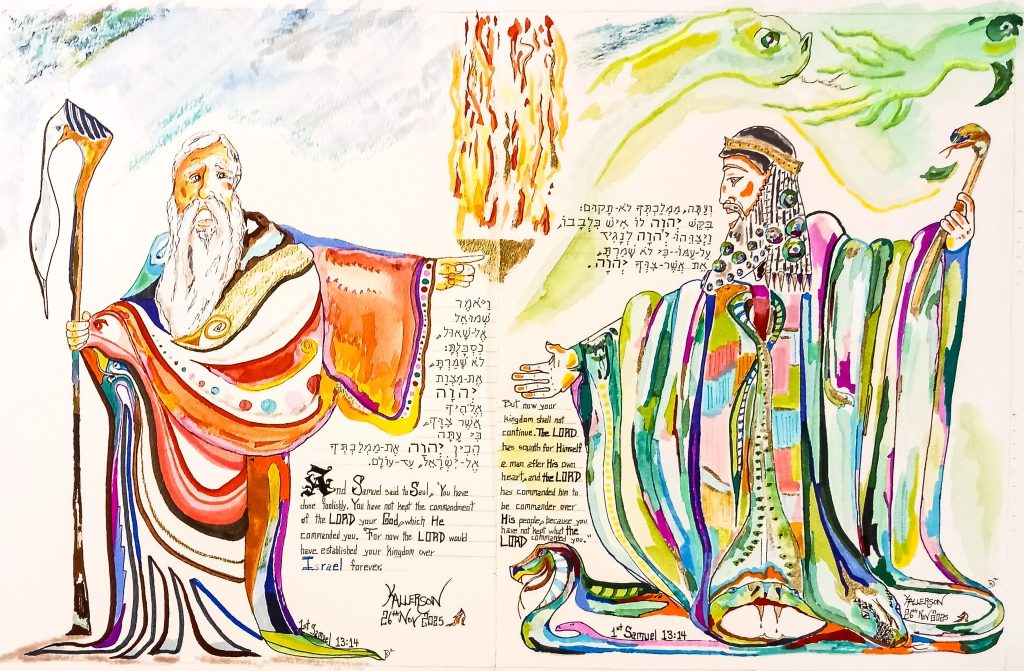 וַיֹּאמֶר
שְׁמוּאֵל
אֶל-שָׁאוּל,
נִסְכָּלְתָּ:
לֹא שָׁמַרְתָּ,
אֶת-מִצְוַת
יְהוָה
אֱלֹהֶיךָ
אֲשֶׁר צִוָּךְ,
כִּי עַתָּה
הֵכִין יְהוָה אֶת-מַמְלַכְתְּךָ
אֶל-יִשְׂרָאֵל, עַד-עוֹלָם.
And Samuel said to Saul, "You have
done foolishly. You have not kept the commandment
of the LORD your God, which He
commanded you. "For now the LORD would
have established your kingdom over
Israel forever.
YALLERSON
26th Nov 2025
1st Samuel 13:14
וְעַתָּה, מַמְלַכְתְּךָ לֹא-תָקוּם:
בִּקֵּשׁ יְהוָה לוֹ אִישׁ כִּלְבָבוֹ,
וַיְצַוֵּהוּ יְהוָה לְנָגִיד
עַל-עַמּוֹ--כִּי לֹא שָׁמַרְתָּ,
אֵת אֲשֶׁר-צִוְּךָ יְהוָה.
But now your
kingdom shall not
continue. The LORD
has sougth for Himself
a man after His own
heart, and the LORD
has commanded him to
be commander over
His people, because you
have not kept what the
LORD commanded you."
1st Samuel 13:14
YALLERSON
26th Nov 2025